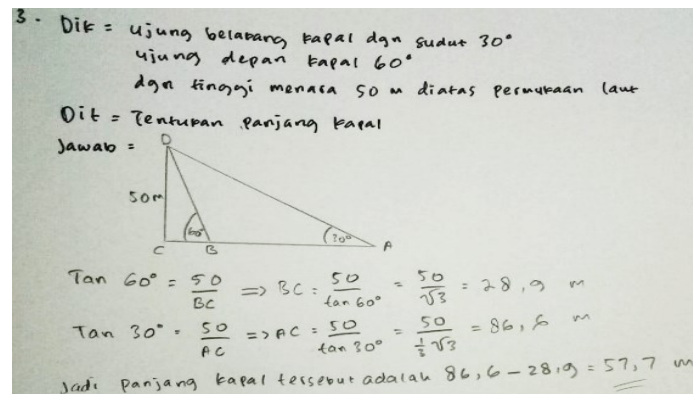 3. Dik = ujung belakang kapal dgn sudut 30°
ujung depan kapal 60°
dgn tinggi menara 50 m diatas permukaan laut
Dit = Tentukan panjang kapal
Jawab =
D
50m
60°
30°
C B A
Tan 60° = 50/BC => BC = 50/tan 60° = 50/√3 = 28,9 m
Tan 30° = 50/AC => AC = 50/tan 30° = 50/⅓√3 = 86,6 m
Jadi panjang kapal tersebut adalah 86,6 - 28,9 = 57,7 m